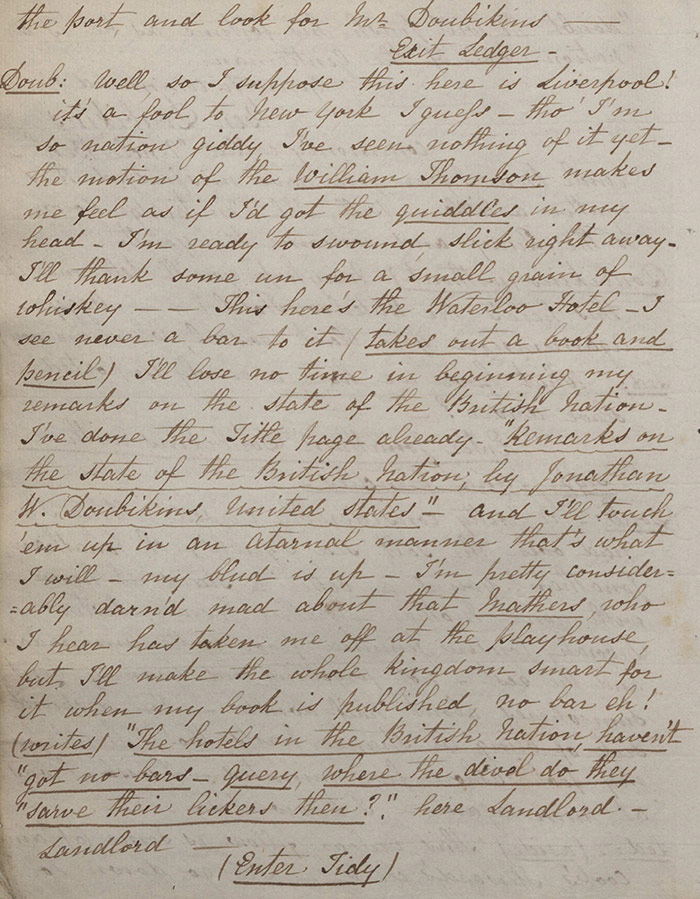 the port, and look for Mr Doubikins —
Exit Ledger -
Doub: Well so I suppose this here is Liverpool!
it's a fool to New York I guess - tho' I'm
so nation giddy I've seen nothing of it yet -
the motion of the William Thomson makes
me feel as if I'd got the quiddles in my
head - I'm ready to swound, slick right away -
I'll thank some un for a small grain of
whiskey — — This here's the Waterloo Hotel - I
see never a bar to it (takes out a book and
pencil) I'll lose no time in beginning my
remarks on the state of the British Nation -
I've done the Title page already - "Remarks on
the state of the British Nation, by Jonathan
W. Doubikins, United states" - and I'll touch
'em up in an atarnal manner that's what
I will - my blud is up - I'm pretty consider=
=ably darn'd mad about that Mathers, who
I hear has taken me off at the playhouse,
but I'll make the whole kingdom smart for
it when my book is published, no bar eh!
(writes) "The hotels in the British Nation, haven't
"got no bars - query, where the divel do they
"sarve their lickers then?". here Landlord -
Landlord —
(Enter Tidy)